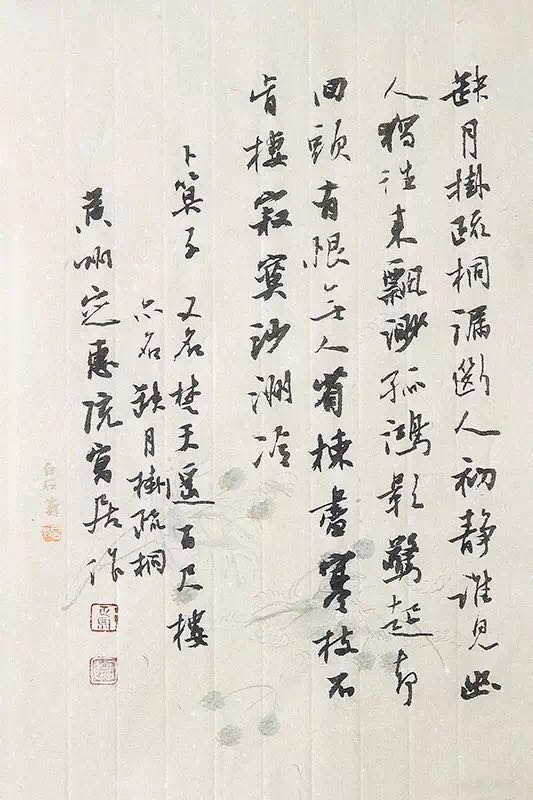 缺月掛疏桐漏斷人初靜誰見幽
人獨往来飄渺孤鴻影驚起却
回頭有恨无人省揀盡寒枝不
肯棲寂寞沙洲冷
卜算子 又名楚天遙百尺樓
亦名缺月掛疏桐
黄州定惠院寓居作